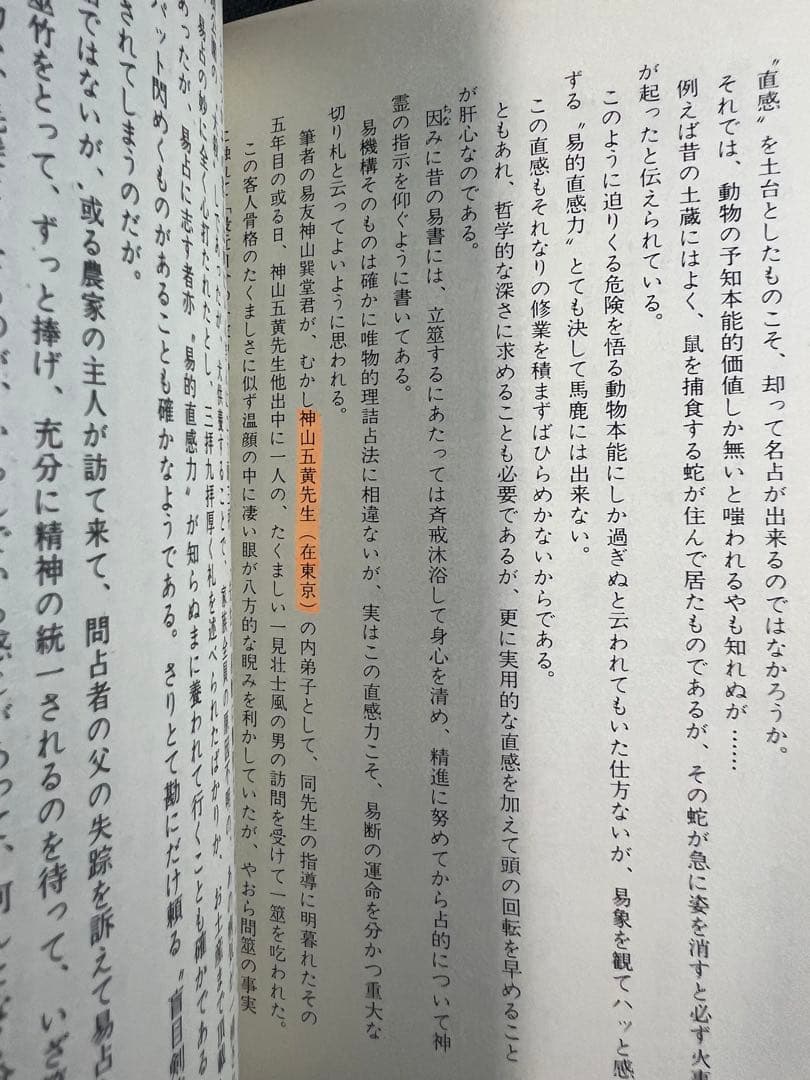 〝直感〟を土台としたものこそ、却って名占が出来るのではなかろうか。
それでは、動物の予知本能的価値しか無いと嗤われるやも知れぬが……
例えば昔の土蔵にはよく、鼠を捕食する蛇が住んで居たものであるが、その蛇が急に姿を消すと必ず火事
が起ったと伝えられている。
このように迫りくる危険を悟る動物本能にしか過ぎぬと云われてもいた仕方ないが、易象を観てハッと感
ずる〝易的直感力〟とても決して馬鹿には出来ない。
この直感もそれなりの修業を積まずばひらめかないからである。
ともあれ、哲学的な深さに求めることも必要であるが、更に実用的な直感を加えて頭の回転を早めること
が肝心なのである。
因みに昔の易書には、立筮するにあたっては斉戒沐浴して身心を清め、精進に努めてから占的について神
霊の指示を仰ぐように書いてある。
易機構そのものは確かに唯物的理詰占法に相違ないが、実はこの直感力こそ、易断の運命を分かつ重大な
切り札と云ってよいように思われる。
筆者の易友神山巽堂君が、むかし神山五黄先生（在東京）の内弟子として、同先生の指導に明暮れたその
五年目の或る日、神山五黄先生他出中に一人の、たくましい一見壮士風の男の訪問を受けて一筮を吃われた。
この客人骨格のたくましさに似ず温顔の中に凄い眼が八方的な睨みを利かしていたが、やおら問筮の事実
易占の妙に全く心打たれたとし、三拝九拝厚く礼を述べられたばかりか、お土産まで
あったが、易占に志す者亦〝易的直感力〟が知らぬまに養われて行くことも確かである
パット閃めくものがあることも確かなようである。さりとて勘にだけ頼る〝盲目剣
されてしまうのだが。
ではないが、或る農家の主人が訪て来て、問占者の父の失踪を訴えて易占
筮竹をとって、ずっと捧げ、充分に精神の統一されるのを待って、いざ